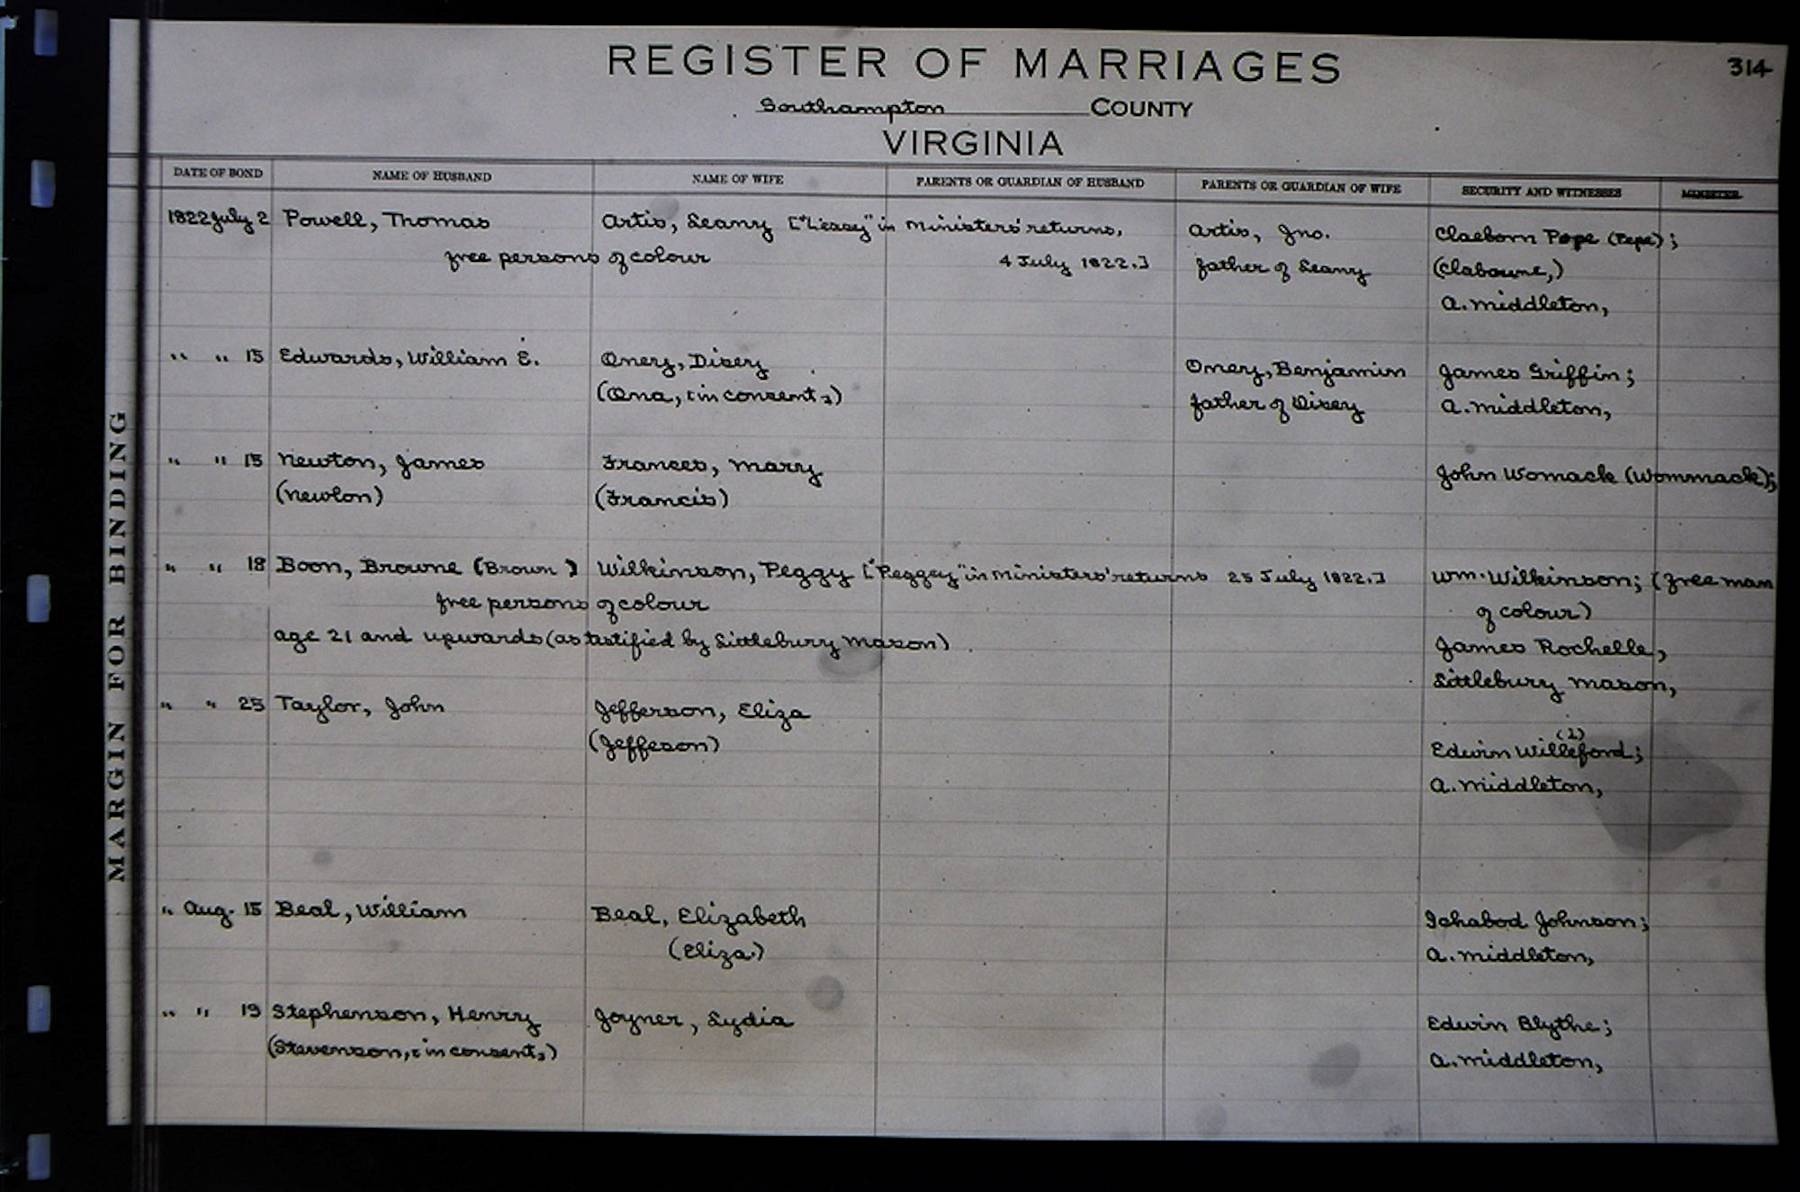 REGISTER OF MARRIAGES
314
Southampton COUNTY
VIRGINIA
DATE OF BOND NAME OF HUSBAND NAME OF WIFE PARENTS OR GUARDIAN OF HUSBAND PARENTS OR GUARDIAN OF WIFE SECURITY AND WITNESSES MINISTER
1822 July 2 Powell, Thomas Artis, Seany ["Leasy" in Ministers' returns, Artis, Jno. Claeborn Pope (Pepe);
free persons of colour 4 July 1822.] father of Seany (Clabourne,)
A. Middleton,
" " 15 Edwards, William E. Omery, Dixey Omery, Benjamin James Griffin;
(Oma, in consent,) father of Dixey A. Middleton,
" " 15 Newton, James Frances, Mary John Womack (Wommack);
(Newlon) (Francis)
" " 18 Boon, Browne (Brown) Wilkinson, Peggy ["Peggey" in Ministers' returns 25 July 1822.] Wm. Wilkinson; (free man
free persons of colour of colour)
age 21 and upwards (as testified by Littlebury Mason) James Rochelle,
Littlebury Mason,
" " 25 Taylor, John Jefferson, Eliza
(Jeffeson) Edwin Willeford;
(i)
A. Middleton,
" Aug. 15 Beal, William Beal, Elizabeth Ichabod Johnson;
(Eliza.) A. Middleton,
" " 19 Stephenson, Henry Joyner, Lydia Edwin Blythe;
(Stevenson, in consent,) A. Middleton,
MARGIN FOR BINDING